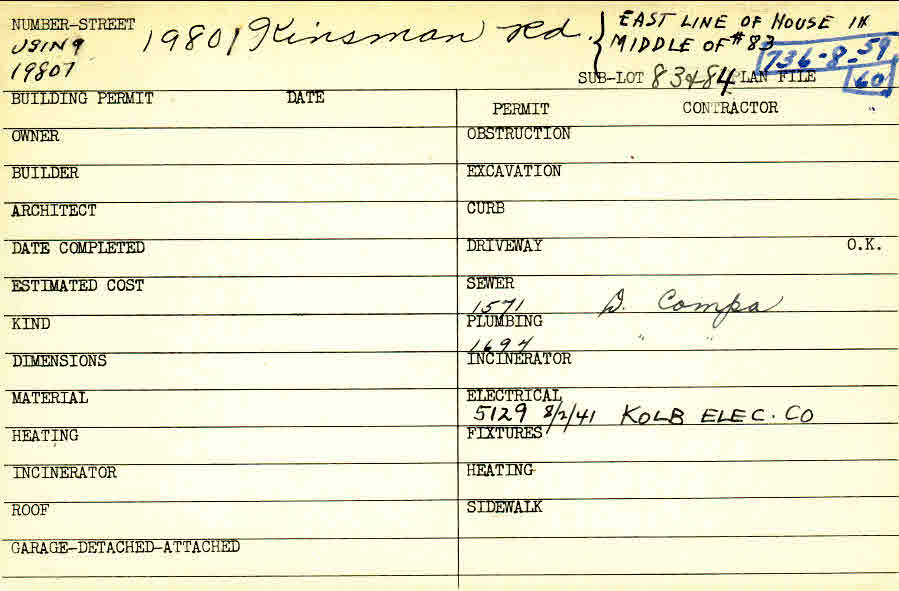 NUMBER-STREET 19801 Kinsman Rd. } EAST LINE OF HOUSE IN
USING MIDDLE OF #83
19807 736-8-59
SUB-LOT 83&84 PLAN FILE 60
BUILDING PERMIT DATE PERMIT CONTRACTOR
OWNER OBSTRUCTION
BUILDER EXCAVATION
ARCHITECT CURB
DATE COMPLETED DRIVEWAY O.K.
ESTIMATED COST SEWER
1571 D. Compa
KIND PLUMBING
1694 " "
DIMENSIONS INCINERATOR
MATERIAL ELECTRICAL
5129 8/2/41 KOLB ELEC. CO
HEATING FIXTURES
INCINERATOR HEATING
ROOF SIDEWALK
GARAGE-DETACHED-ATTACHED